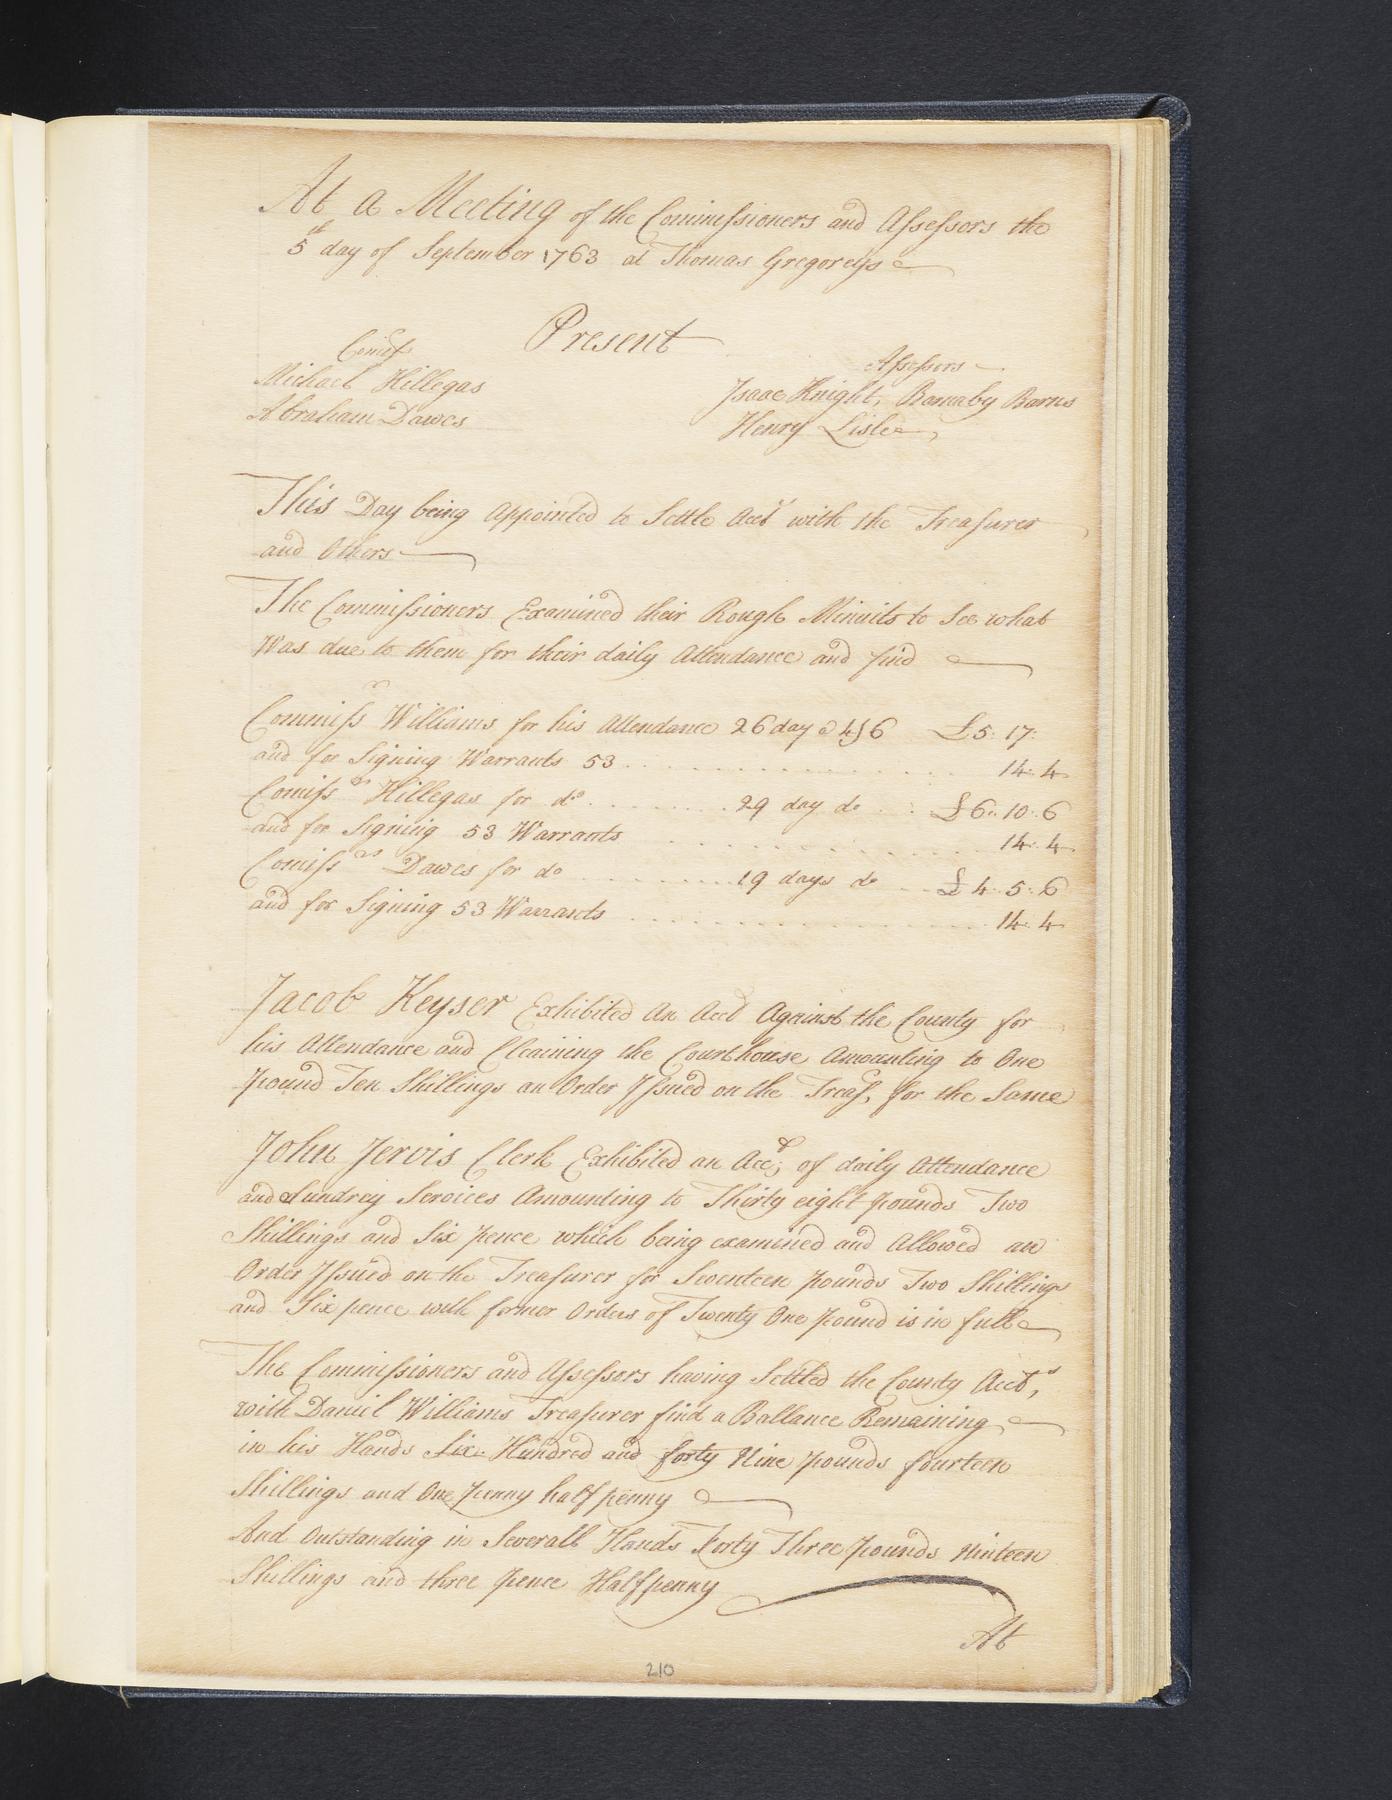 At a Meeting of the Commissioners and Assessors the
5th day of September 1763 at Thomas Gregoreys
Present
Comrs
Michael Hillegas
Abraham Dawes
Assessors
Isaac Knight, Barnaby Barns
Henry Lisle
This Day being Appointed to Settle Accts with the Treasurer
and Others
The Commissioners Examined their Rough Minuits to See what
Was due to them for their daily Attendance and find
Commissr Williams for his Attendance 26 day @ 4/6 £5. 17.
and for Signing Warrants 53 14. 4
Comissrs Hillegas for do. 29 day do £6. 10. 6
and for Signing 53 Warrants 14. 4
Comissrs Dawes for do 19 days do £4. 5. 6
and for Signing 53 Warrants 14. 4
Jacob Keyser Exhibited an Acct Against the County for
his Attendance and Cleaining the Courthouse Amounting to One
pound Ten Shillings an Order Issued on the Treasr, for the Same
John Jervis Clerk Exhibited an Acct, of daily Attendance
and Sundrey Services Amounting to Thirty eight pounds Two
Shillings and Six pence which being examined and Allowed an
Order Issued on the Treasurer for Seventeen pounds Two Shillings
and Six pence with former Orders of Twenty One pound is in full
The Commissioners and Assessors having Settled the County Accts,
with Daniel Williams Treasurer find a Ballance Remaining
in his Hands Six Hundred and forty Nine pounds fourteen
Shillings and One penny half penny
And Outstanding in Severall Hands Forty Three pounds Ninteen
Shillings and three pence Halfpenny
At
210